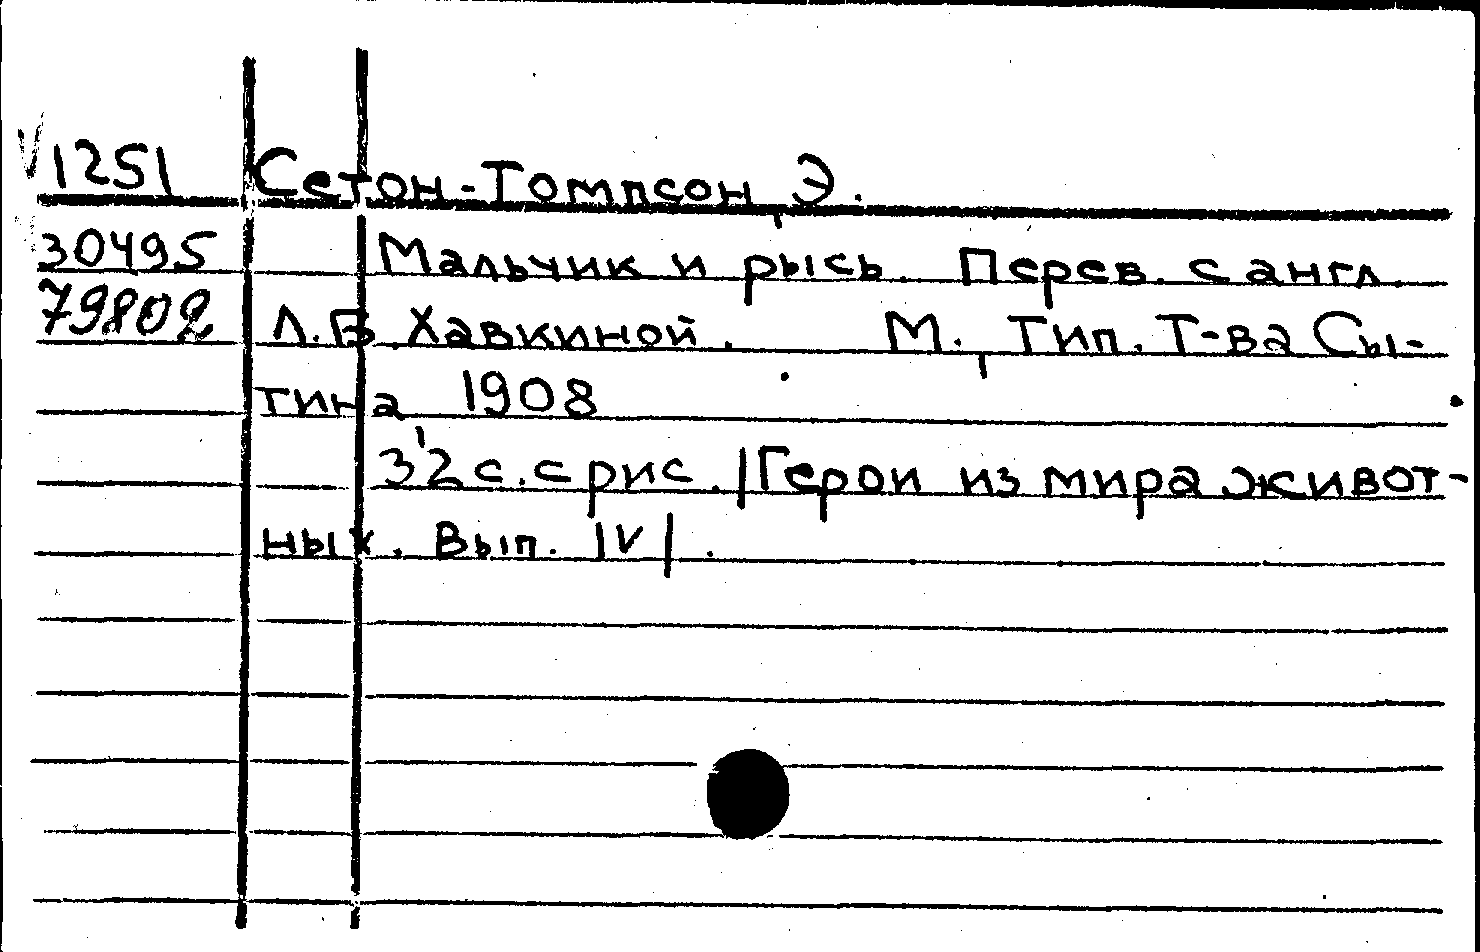 1251 Сетон-Томпсон, Э.
30495 Мальчик и рысь. Перев. с англ.
79802 Л.Б. Хавкиной. М., Тип. Т-ва Сы-
тина, 1908
32 с. с рис. /Герои из мира живот-
ных. Вып. IV/.